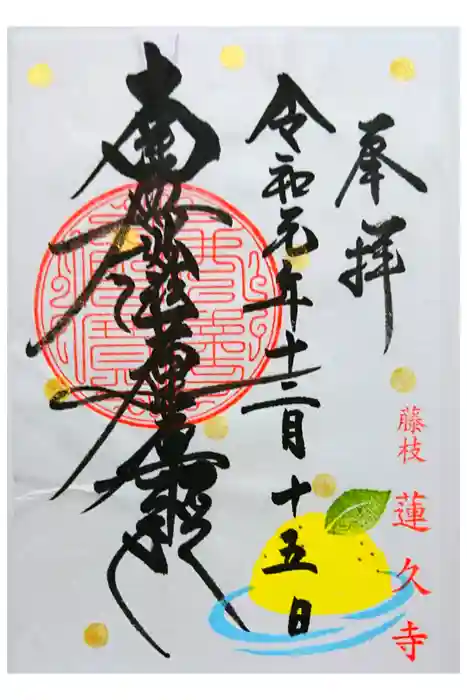 奉拝
藤枝 蓮久寺
令和元年十二月十五日
南無妙法蓮華経